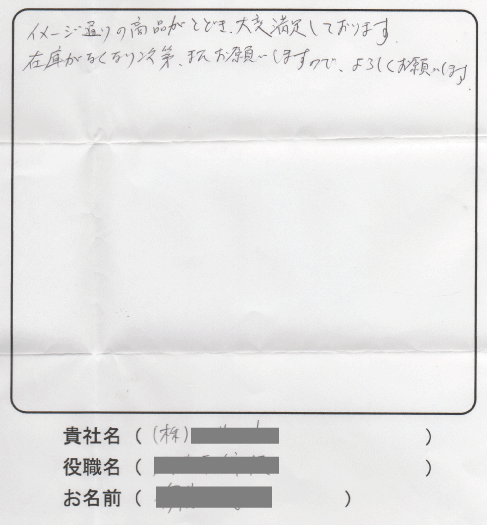 イメージ通りの商品がとどき、大変満足しております.
在庫がなくなり次第、またお願いしますので、よろしくお願いします.
貴社名 ( (株) )
役職名 ( )
お名前 ( )